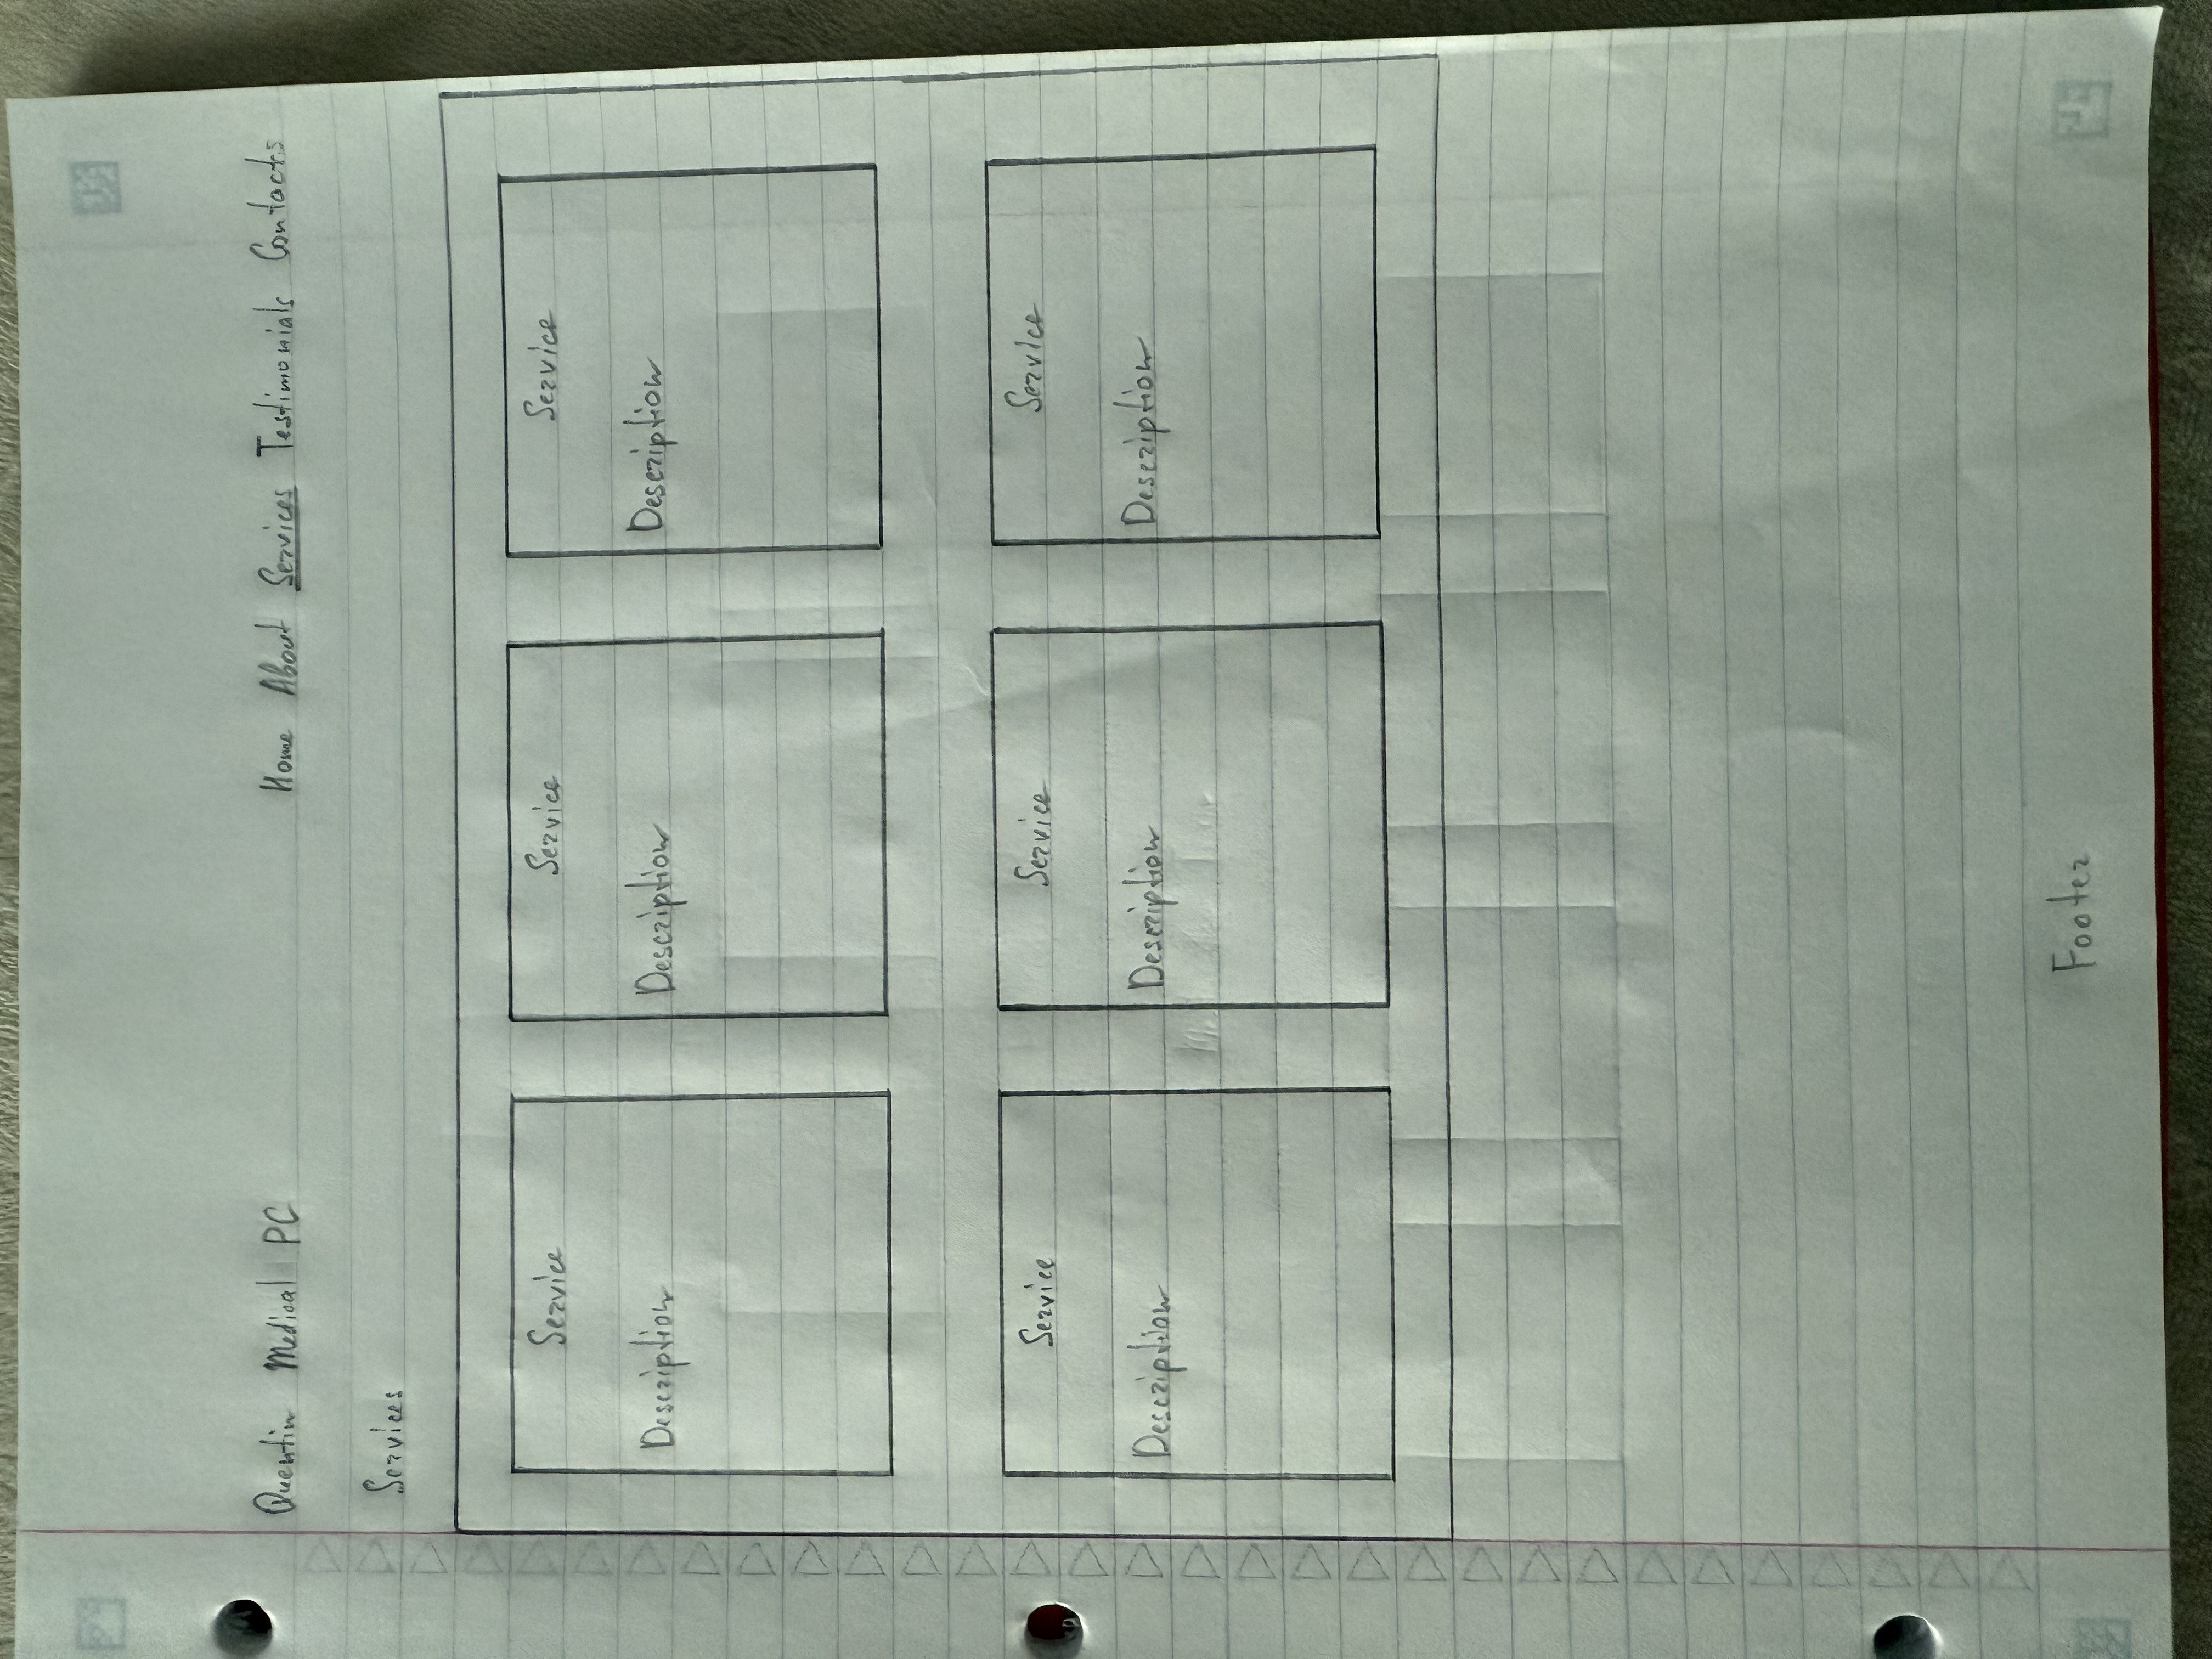 Quentin Medical PC Home About Services Testimonials Contacts
Services
Service Service Service
Description Description Description
Service Service Service
Description Description Description
Footer